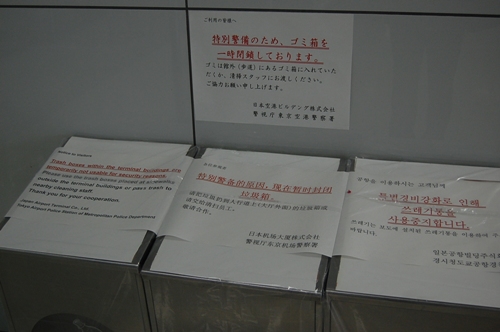 ご利用の皆様へ
特別警備のため、ゴミ箱を
一時閉鎖しております。
ゴミは館外(歩道)にあるゴミ箱に入れていた
だくか、清掃スタッフにお渡しください。
ご協力お願い申し上げます。
日本空港ビルデング株式会社
警視庁東京空港警察署
Trash boxes within the terminal buildings are
temporarily not usable for security reasons.
Please use the trash boxes placed at
outside the terminal buildings or pass trash to
nearby cleaning staff.
Thank you for your cooperation.
Japan Airport Terminal Co., Ltd.
Tokyo Airport Police Station of Metropolitan Police Department
特别警备的原因,现在暂时封闭
垃圾箱。
日本机场大厦株式会社
警视厅东京机场警察署
공항을 이용하시는 고객님께
특별경비강화로 인해
쓰레기통을
사용중지합니다.
쓰레기는 보도에 설치된 쓰레기통을 이용하여 주
일본공항빌딩주식회
경시청도쿄공항경